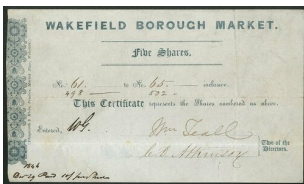 WAKEFIELD BOROUGH MARKET.
Five Shares.
No. 61. to No. 65 inclusive.
498 502
This Certificate represents the Shares numbered as above.
Entered, WG.
Wm Teall
Two of the
Directors.
Atkinson
1846